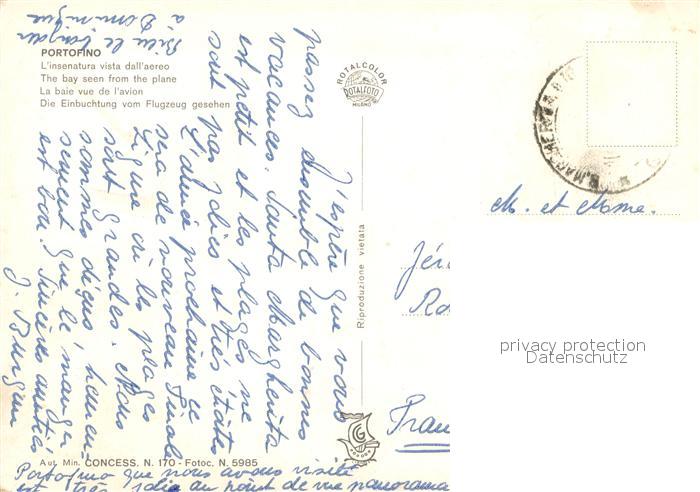 PORTOFINO
L'insenatura vista dall'aereo
The bay seen from the plane
La baie vue de l'avion
Die Einbuchtung vom Flugzeug gesehen
ROTALCOLOR
ROTALFOTO
MILANO
Riproduzione vietata
J'espère que vous
passez ensemble de bonnes
vacances. Santa Margherita
est petit et les plages ne
sont pas jolies et très étroites
L'année prochaine ce
sera de nouveau Finale
Ligure où les plages
sont grandes. Nous
sommes déçus heureu-
sement que le manger
est bon. Sincères amitiés
J.
Bien le bonjour
à Dominique
M. et Mme.
Jér
Ro
Fran
privacy protection
Datenschutz
Aut. Min. CONCESS. N. 170 - Fotoc. N. 5985
Portofino que nous avons visité
est très jolie au point de vue panorama